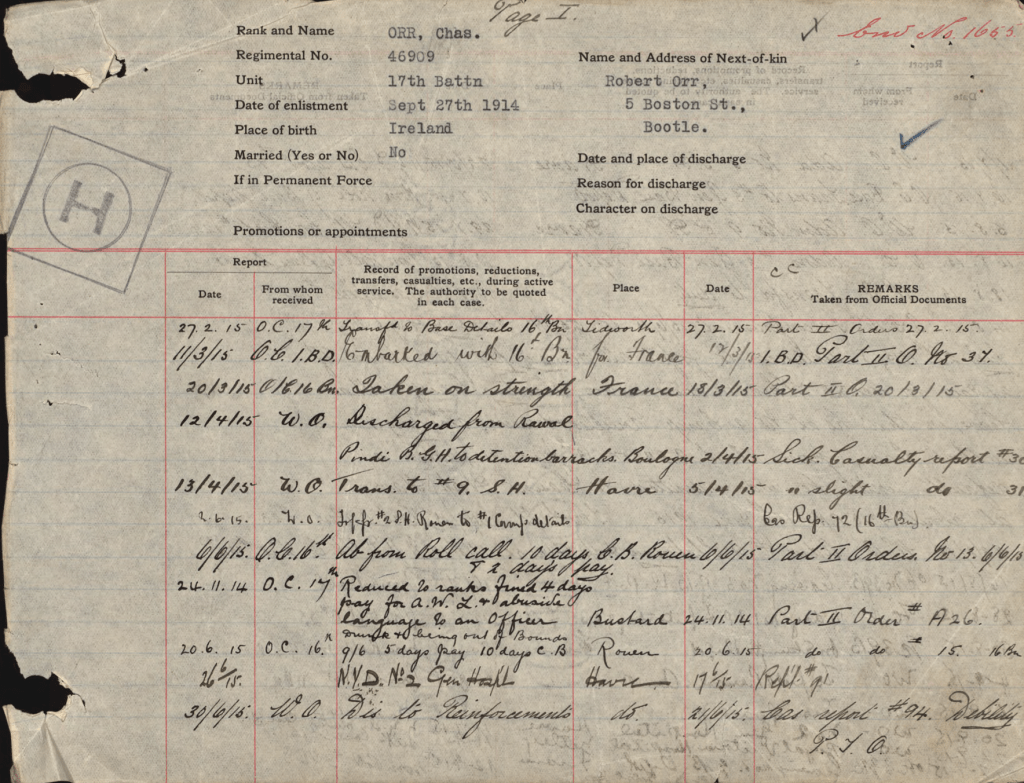 Page I.
Rank and Name ORR, Chas.
Regimental No. 46909
Unit 17th Battn
Date of enlistment Sept 27th 1914
Place of birth Ireland
Married (Yes or No) No
If in Permanent Force
Promotions or appointments
No. 1655
Name and Address of Next-of-kin
Robert Orr,
5 Boston St.,
Bootle.
Date and place of discharge
Reason for discharge
Character on discharge
H
Report
Date
From whom received
Record of promotions, reductions, transfers, casualties, etc., during active service. The authority to be quoted in each case.
Place
Date
CC
REMARKS
Taken from Official Documents
27.2.15 O.C. 17th Transf'd to Base Details 16th Bn Tidworth 27.2.15 Part II Orders 27.2.15.
11/3/15 O.C. I.B.D. Embarked with 16th Bn for France I.B.D. Part II O. No 37.
20/3/15 O/C 16 Bn. Taken on strength France 18/3/15 Part II O. 20/3/15
12/4/15 W.O. Discharged from Rawal
Pindi B.G.H. to detention barracks. Boulogne 2/4/15 Sick. Casualty report #30
13/4/15 W.O. Trans. to #9. S.H. Havre 5/4/15 " slight do 31
2.6.15. W.O. #2 S.H. Rouen to #1 Camp details Cas Rep. 72 (16th Bn).
6/6/15. O.C. 16th Ab from Roll call. 10 days C.B. Rouen 6/6/15 Part II Orders. No 13. 6/6/15
& 2 days pay.
24.11.14 O.C. 17th Reduced to ranks fined 4 days
pay for A.W.L. & abusive
language to an Officer Bustard 24.11.14 Part II Order # A26.
Drunk & being out of Bounds
20.6.15 O.C. 16th 9/6 5 days pay 10 days C.B Rouen 20.6.15 do do # 15. 16 Bn
26/6/15. N.Y.D. No 2 Gen Hospt Havre 17/6/15 Rept. #91.
30/6/15. W.O. Dis to Reinforcements do. 21/6/15. Cas report #94. Debility
P.T.O.